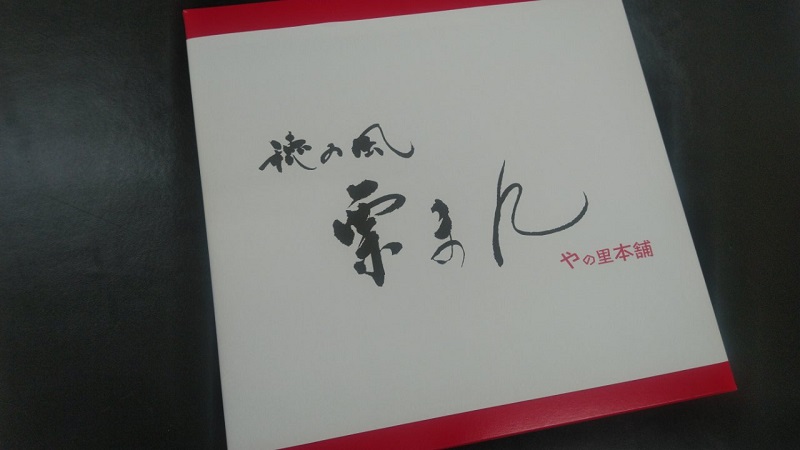 穂の風
栗まん
やの里本舗